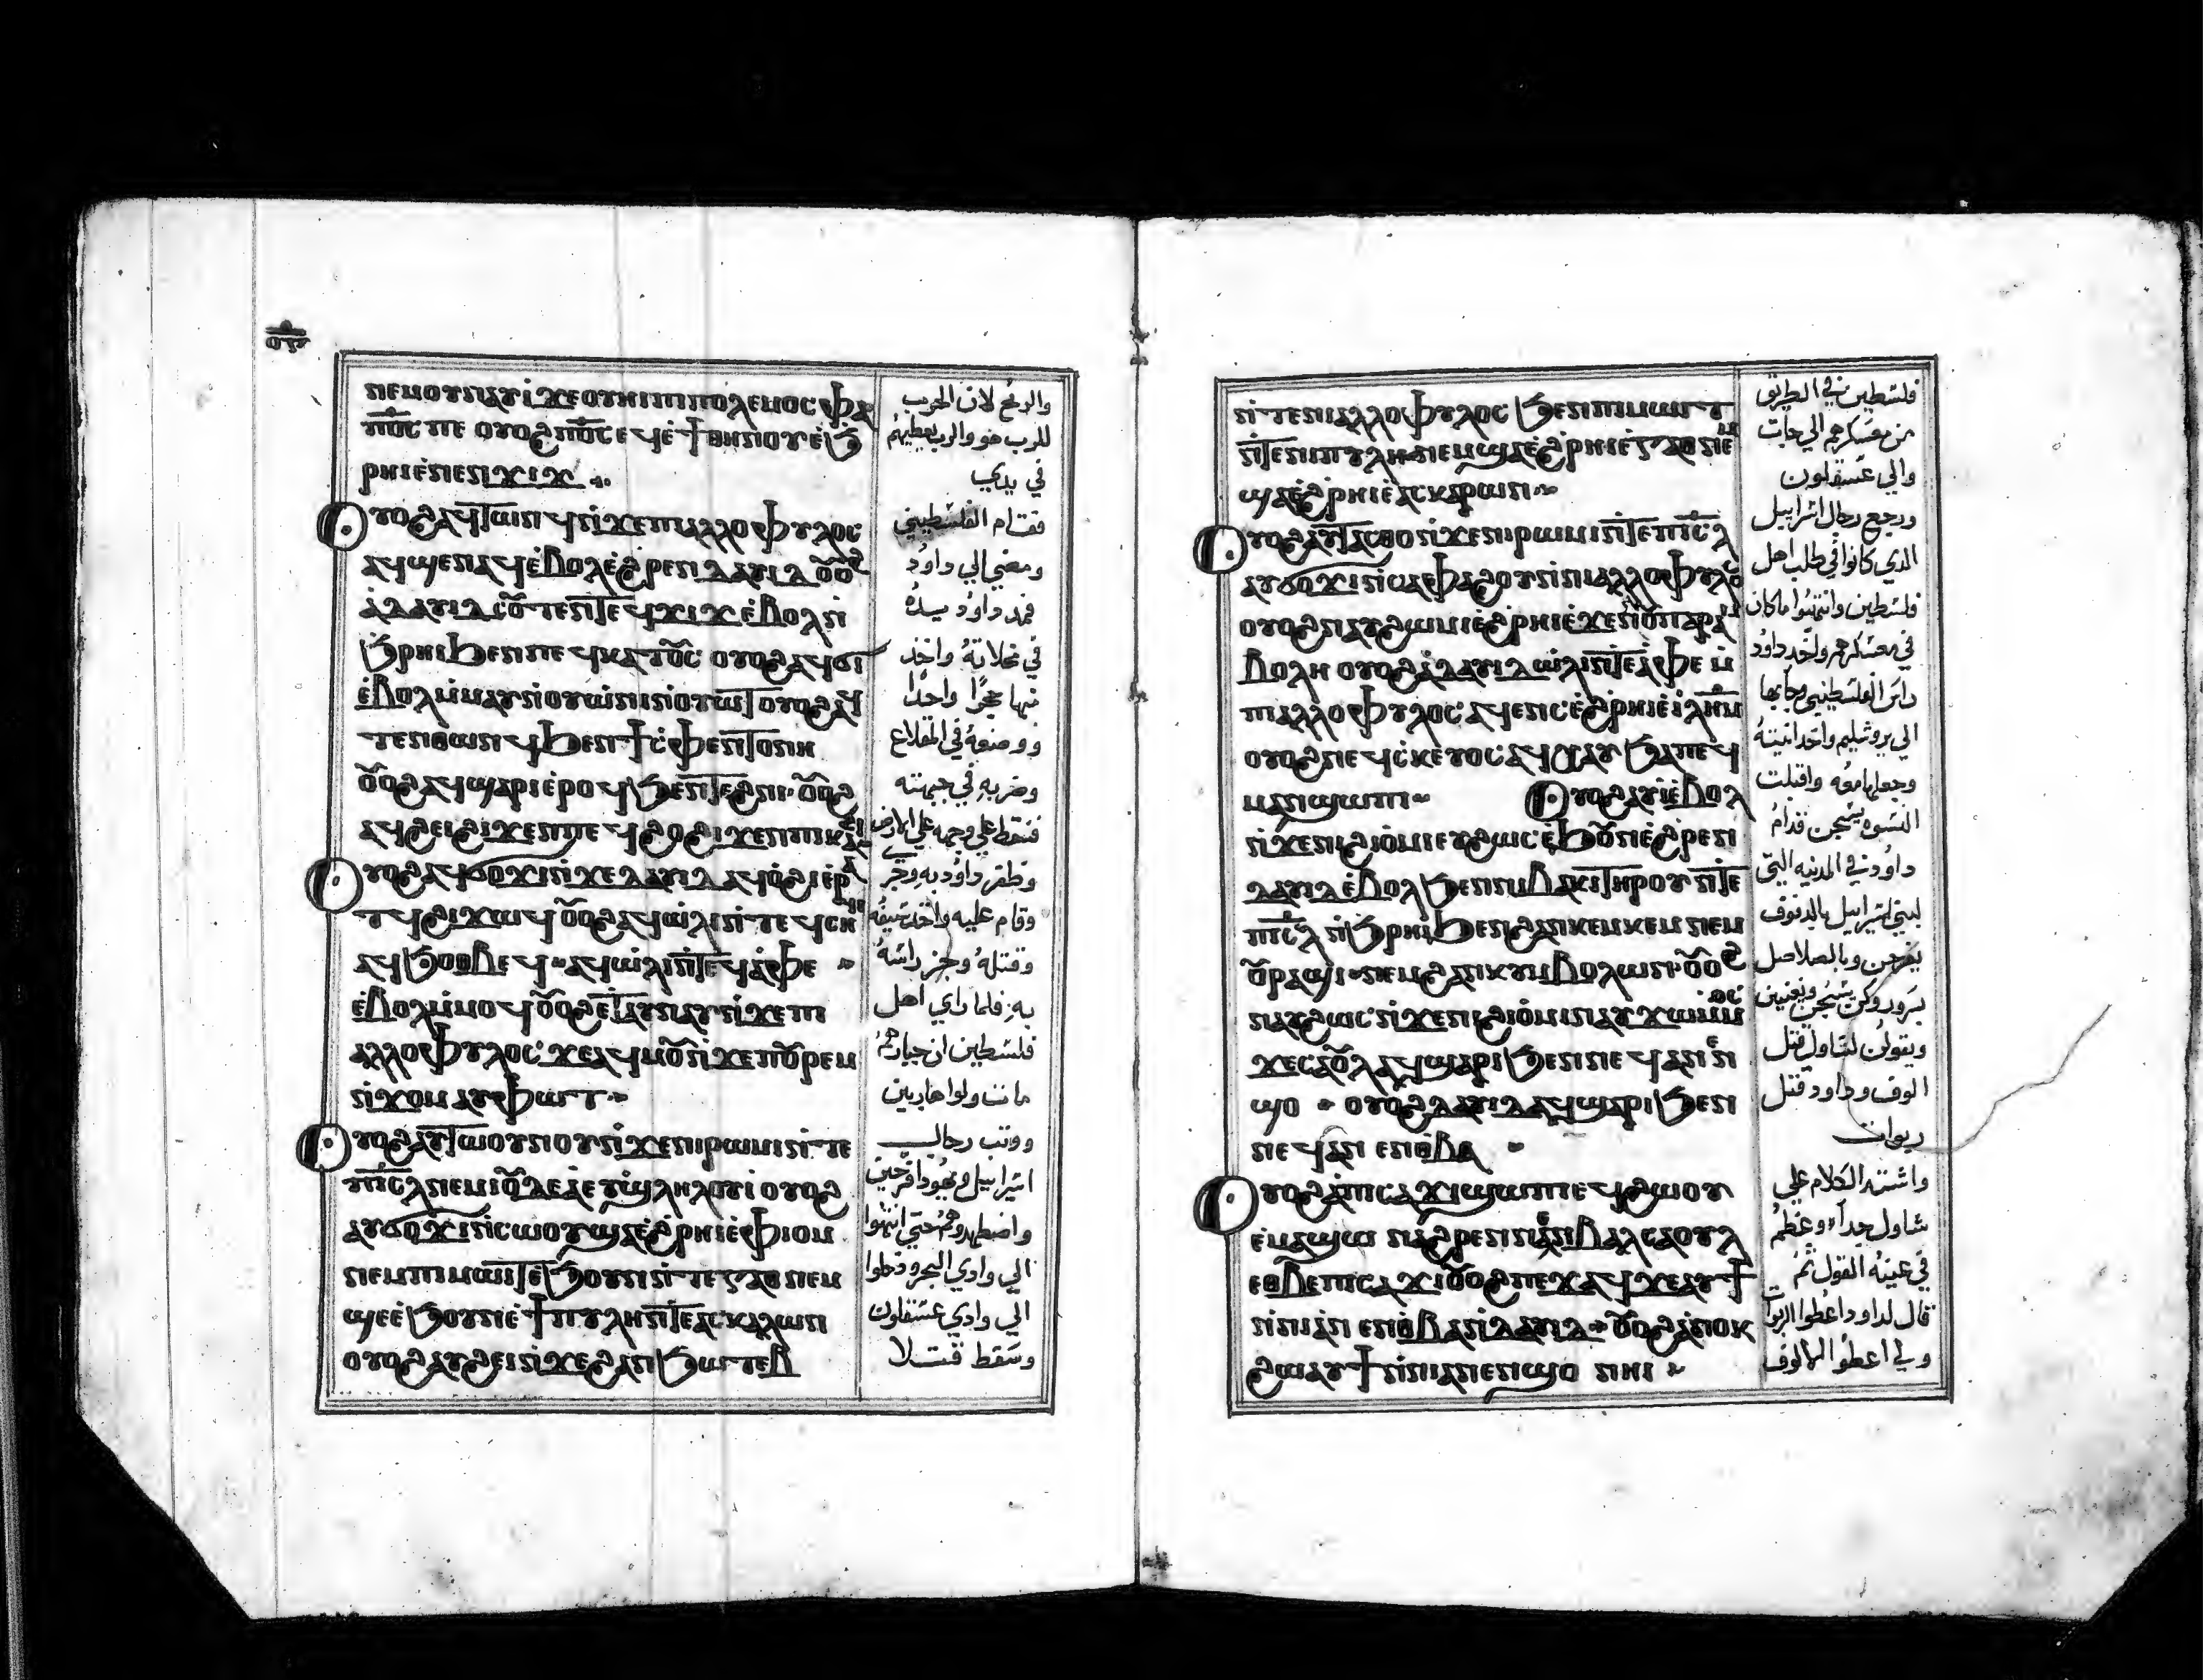 ⲛⲉⲙⲟⲩⲛⲁⲩⲓ ϫⲉ ⲟⲩⲏⲓ ⲡⲓⲡⲟⲗⲉⲙⲟⲥ ⲫⲁ
ⲡ⳪ ⲡⲉ ⲟⲩⲟϩ ⲡ⳪ ⲉϥⲉ̀ϯⲑⲏⲛⲟⲩ ⲉ̀ϧ
ⲣⲏⲓ ⲉ̀ⲛⲉⲛϫⲓϫ
ⲟⲩⲟϩ ⲁϥⲧⲱⲛϥ ⲛ̀ϫⲉ ⲡⲓⲁⲗⲗⲟⲫⲩⲗⲟⲥ
ⲁϥϣⲉⲛⲁϥ ⲉ̀ⲃⲟⲗ ⲉ̀ϩⲣⲉⲛ ⲇⲁⲩⲓⲇ ⲟⲩⲟϩ
ⲁ̀ ⲇⲁⲩⲓⲇ ⲥⲟⲩⲧⲉⲛ ⲧⲉϥϫⲓϫ ⲉ̀ⲃⲟⲗ ⲛ̀
ϧⲣⲏⲓ ϧⲉⲛ ⲡⲉϥⲕⲁⲧⲟⲥ ⲟⲩⲟϩ ⲁϥϭⲓ
ⲉ̀ⲃⲟⲗ ⲙ̀ⲙⲁⲩ ⲛ̀ⲟⲩⲱ̀ⲛⲓ ⲛ̀ⲟⲩⲱⲧ ⲟⲩⲟϩ ⲁϥ
ϧⲉⲛ ϯⲥ̀ⲫⲉⲛⲧⲟⲛⲏ
ⲟⲩⲟϩ ⲁϥϣⲁⲣⲓ ⲉ̀ⲣⲟϥ ϧⲉⲛ ⲧⲉϩⲛⲓ ⲟⲩⲟϩ
ⲁϥϩⲉⲓ ϩⲓϫⲉⲛ ⲡⲉϥϩⲟ ϩⲓϫⲉⲛ ⲡⲓⲕⲁϩⲓ
ⲟⲩⲟϩ ⲁϥϭⲟϫⲓ ⲛ̀ϫⲉ ⲇⲁⲩⲓⲇ ⲁϥⲟ̀ϩⲓ ⲉ̀ⲣⲁ
ⲧϥ ϩⲓϫⲱϥ ⲟⲩⲟϩ ⲁϥⲱ̀ⲗⲓ ⲛ̀ⲧⲉϥⲥⲏϥⲓ
ⲁϥϧⲟⲑⲃⲉϥ ⲁϥⲱ̀ⲗⲓ ⲛ̀ⲧⲉϥⲁ̀ⲫⲉ
ⲉ̀ⲃⲟⲗ ⲙ̀ⲙⲟϥ ⲟⲩⲟϩ ⲉⲧⲁⲩⲛⲁⲩ ⲛ̀ϫⲉ ⲡⲓ
ⲁⲗⲗⲟⲫⲩⲗⲟⲥ ϫⲉ ⲁϥⲙⲟⲩ ⲛ̀ϫⲉ ⲡⲟⲩⲣⲉⲙ
ⲛ̀ϫⲟⲙ ⲁⲩⲫⲱⲧ
ⲟⲩⲟϩ ⲁⲩⲧⲱⲟⲩⲛⲟⲩ ⲛ̀ϫⲉ ⲛⲓⲣⲱⲙⲓ ⲛ̀ⲧⲉ
ⲡⲓⲥⲗ ⲛⲉⲙ ⲓⲟⲩⲇⲉⲁ̀ ⲉⲩϣ̀ⲗⲏⲗⲟⲩⲓ ⲟⲩⲟϩ
ⲁⲩϭⲟϫⲓ ⲛ̀ⲥⲱⲟⲩ ϣⲁ ⲉ̀ϩⲣⲏⲓ ⲉ̀ⲫⲓⲟⲙ
ⲛⲉⲙ ⲡⲓⲙⲱⲓⲧ ⲉ̀ϧⲟⲩⲛ ⲛ̀ⲧⲉ ⲅⲉⲑ ⲛⲉⲙ
ϣⲉ ⲉ̀ϧⲟⲩⲛ ⲉ̀ϯⲡⲩⲗⲏ ⲛ̀ⲧⲉ ⲁⲥⲕⲁⲗⲱⲛ
ⲟⲩⲟϩ ⲁⲩϩⲉⲓ ⲛ̀ϫⲉ ϩⲁⲛϧⲱⲧⲉⲃ
والرمح لان الحرب
للرب هو والرب يعطيهم
في يدي
فقام الفلسطيني
ومضي الي داوود
فمد داوود يده
في مخلاته واخذ
منها حجرًا واحدًا
ووضعه في المقلاع
وضربه في جبهته
فسقط علي وجهه علي الارض
وظفر داوود به
وقام عليه واخذ سيفه
وقتله وجز راسه
به فلما راي اهل
فلسطين ان جبارهم
مات ولوا هاربين
ووثب رجال
اسراييل ويهودا فرحين
واضطهدوهم حتي انتهوا
الي وادي البحر ودخلوا
الي وادي عسقلون
وسقط قتلا
ⲛ̀ⲧⲉ ⲛⲓⲁⲗⲗⲟⲫⲩⲗⲟⲥ ϧⲉⲛ ⲡⲓⲙⲱⲓⲧ
ⲛ̀ⲧⲉ ⲛⲓⲡⲩⲗⲏ ⲛⲉⲙ ϣⲁ ⲉ̀ϩⲣⲏⲓ ⲉ̀ⲅⲉⲑ ⲛⲉⲙ
ϣⲁ ⲉ̀ϩⲣⲏⲓ ⲉ̀ⲁⲥⲕⲁⲣⲱⲛ
ⲟⲩⲟϩ ⲁⲩⲧⲁⲥⲑⲟ ⲛ̀ϫⲉ ⲛⲓⲣⲱⲙⲓ ⲛ̀ⲧⲉ ⲡⲓⲥⲗ
ⲁⲩϭⲟϫⲓ ⲛ̀ⲥⲁ ⲫⲁϩⲟⲩ ⲛ̀ⲛⲓⲁⲗⲗⲟⲫⲩⲗⲟⲥ
ⲃⲟⲗⲏ ⲟⲩⲟϩ ⲁ̀ ⲇⲁⲩⲓⲇ ⲱ̀ⲗⲓ ⲛ̀ⲧⲁ̀ⲫⲉ ⲙ̀
ⲡⲓⲁⲗⲗⲟⲫⲩⲗⲟⲥ ⲁϥⲉⲛⲥ ⲉ̀ϩⲣⲏⲓ ⲉ̀ⲓ̀ⲗⲏⲙ
ⲟⲩⲟϩ ⲛⲉϥⲥ̀ⲕⲉⲩⲟⲥ ⲁϥⲭⲁⲩ ϧⲁ ⲡⲉϥ
ⲙⲁⲛ̀ϣⲱⲡⲓ ⲟⲩⲟϩ ⲁⲩⲓ̀ ⲉ̀ⲃⲟⲗ
ⲛ̀ϫⲉ ⲛⲓϩⲓⲟ̀ⲙⲓ ⲉⲩϩⲱⲥ ⲉ̀ϧⲟⲩⲛ ⲉ̀ϩⲣⲉⲛ
ⲇⲁⲩⲓⲇ ⲉ̀ⲃⲟⲗ ϧⲉⲛ ⲛⲓⲃⲁⲕⲓ ⲧⲏⲣⲟⲩ ⲛ̀ⲧⲉ
ⲡⲓⲥⲗ ⲛ̀ϧⲣⲏⲓ ϧⲉⲛ ϩⲁⲛⲕⲉⲙⲕⲉⲙ ⲛⲉⲙ
ⲟⲩⲣⲁϣⲓ ⲛⲉⲙ ϩⲁⲛⲕⲩⲙⲃⲟⲗⲱⲛ ⲟⲩⲟϩ
ⲛⲁⲩϩⲱⲥ ⲛ̀ϫⲉ ⲛⲓϩⲓⲟ̀ⲙⲓ ⲛⲁⲩϫⲱ ⲙ̀ⲙⲟⲥ
ϫⲉ ⲥⲁⲟⲩⲗ ⲁϥϣⲁⲣⲓ ϧⲉⲛ ⲛⲉϥⲁⲛⲁⲛ
ϣⲟ ⲟⲩⲟϩ ⲇⲁⲩⲓⲇ ⲁϥϣⲁⲣⲓ ϧⲉⲛ
ⲛⲉϥⲁⲛ ⲉⲛⲑ̀ⲃⲁ
ⲟⲩⲟϩ ⲁ̀ ⲡⲓⲥⲁϫⲓ ϣⲱⲡⲓ ⲉϥϩⲱⲟⲩ
ⲉ̀ⲙⲁϣⲱ ⲛⲁϩⲣⲉⲛ ⲛⲉⲛⲃⲁⲗ ⲛ̀ⲥⲁⲟⲩⲗ
ⲉⲑⲃⲉ ⲡⲓⲥⲁϫⲓ ⲟⲩⲟϩ ⲡⲉϫⲁϥ ϫⲉ ⲁⲩϯ
ⲛ̀ⲛⲓⲁ̀ⲛ ⲉⲛⲑ̀ⲃⲁ ⲛ̀ⲇⲁⲩⲓⲇ ⲟⲩⲟϩ ⲁ̀ⲛⲟⲕ
ϩⲱ ⲁⲩϯ ⲛ̀ⲛⲓⲁⲛ ⲉⲛϣⲟ ⲛⲏⲓ
فلسطين في الطريق
من معسكرهم الي جات
والي عسقلون
ورجع رجال اسراييل
الذي كانوا في طلب اهل
فلسطين وانتهبوا ما كان
في معسكرهم واخذ داوود
راس الفلسطيني وجا بها
الي يروشليم واخذ انيته
وجعلها معه واقبلت
النسوه يسبحن قدام
داوود في المدينه التي
لبني اسراييل بالدفوف
يفرحن وبالصلاصل
ويقولن لشاول قتل
الوف وداود قتل
ربوات
واشتد الكلام علي
شاول جدًا وعظم
في عينه القول ثم
قال لداود اعطوا الربوات
ولي اعطوا الالوف